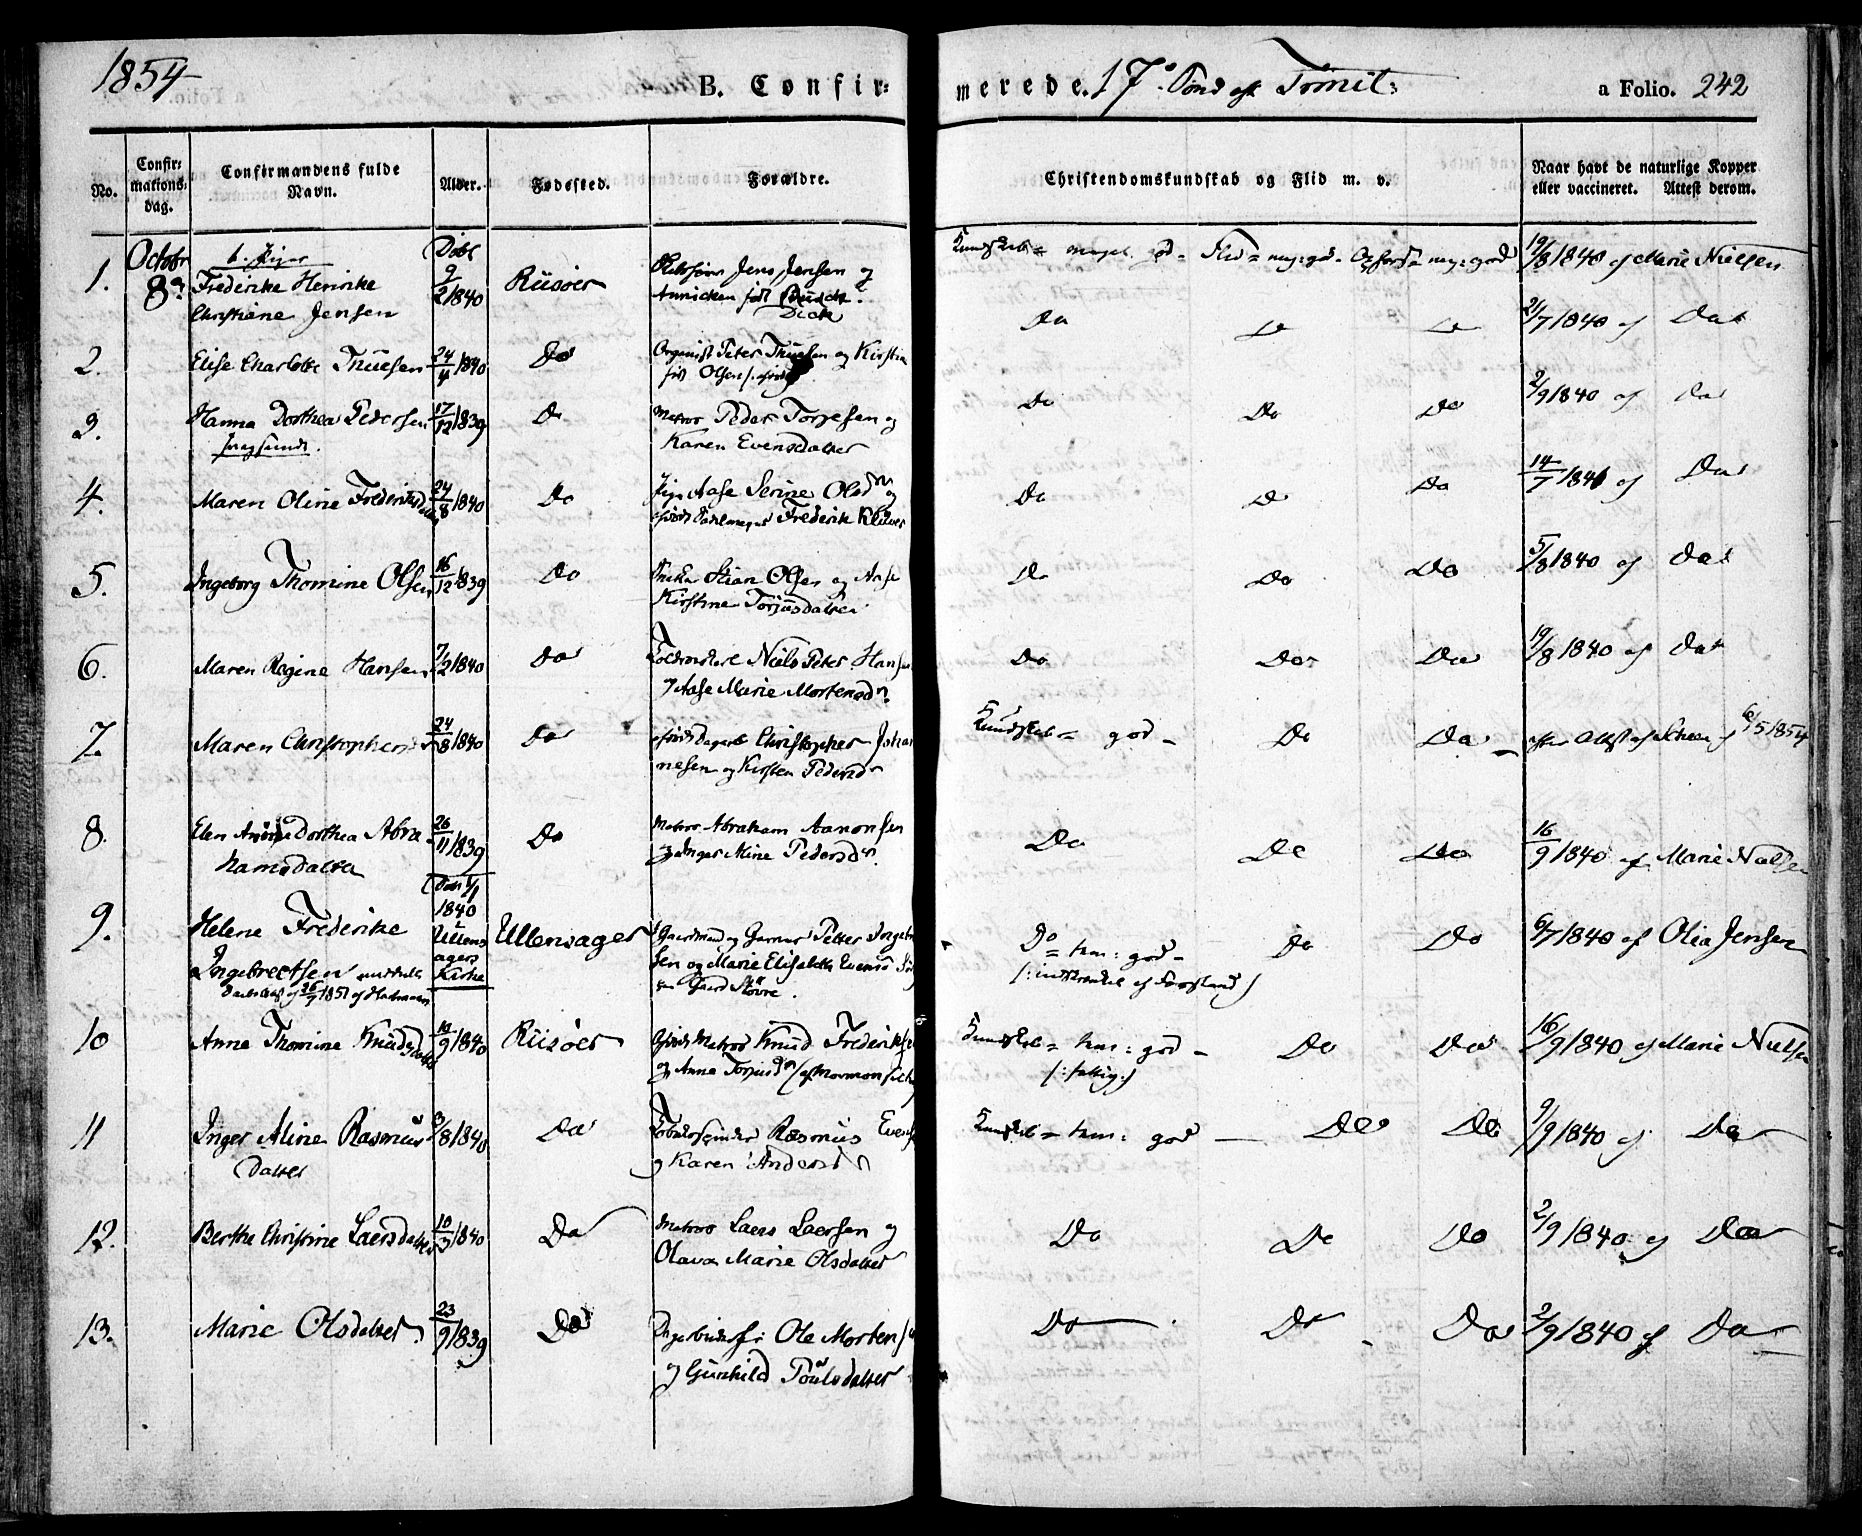 1854
B. Confir-
merede. 17de Sønd eft Trinit:
a Folio. 242
No.
Confir-
mations-
dag.
Confirmandens fulde
Navn.
Alder.
Fødested.
Forældre.
Christendomskundskab og Flid m. v.
Naar havt de naturlige Kopper
eller vaccineret. Attest derom.
Octobr 8de
b. Piger
Døbt
1. Frederikke Henrikke 9/2 1840 Riisøer Jens Jensen og
Christiane Jensen Annicken født
Kundskab = meget god - Flid = meg: god - Opførsel = meg: god 19/8 1840 af Marie Nielsen
2. Elise Charlotte Thuesen 24/4 1840 Do Organist Peter Thuesen og Kirstine
født Olsen
Do Do Do 21/7 1840 af Do
3. Hanna Dorthea Pedersen 17/12 1839 Do Matros Peder Torjesen og
Karen Evensdatter
Do Do Do 2/9 1840 af Do
4. Maren Oline Frederiksdatter 24/8 1840 Do Pige Aase Serine Olsdr og
Frederik Klüwer
Do Do Do 14/7 1841 af Do
5. Ingeborg Thomine Olsen 16/12 1839 Do Stian Olsen og Aase
Kirstine Torjusdatter
Do Do Do 5/8 1840 af Do
6. Maren Regine Hansen 7/2 1840 Do Niels Peter Hansen
og Aase Marie Mortensdr
Do Do Do 19/8 1840 af Do
7. Maren Christophersdr 24/8 1840 Do Christopher Johan
nesen og Kirsten Pedersdr
Kundskab = god - Do Do - efter Attest af Scheen af 6/5 1854
8. Elen Dorthea Abra- 26/11 1839 Do Matros Abraham Aanonsen
hamsdatter og Inger Aline Pedersdr
Do Do Do 16/9 1840 af Marie Nielsen
9. Helene Frederikke 1840 Ullensager Gaardmand og Garver Petter Ingebret
Ingebrectsen Ullens
agers
Kirke
sen og Marie Elisabeth Evensd
Do = tem: god - Do Do 6/7 1840 af Olea Jensen
(: indskrænket af Forstand)
10 Anne Thomine Knudsdatter /9 1840 Riisöer Matros Knud Frederiksen
og Anne Torjusdr (af Mormon
Kundskab = tem: god - Do Do 16/9 1840 af Marie Nielsen
(: fattig :)
11 Inger Aline Rasmus 3/8 1840 Do Rasmus Evensen
datter og Karen Andersdr
Kundskab = tem: god - Do Do 9/9 1840 af Do
12. Berthe Christine Laersdatter 10/3 1840 Do Matros Laers Laersen og
Olava Marie Olsdatter
Do Do Do 2/9 1840 af Do
13. Marie Olsdatter 23/9 1839 Do Ole Mortensen
og Gunhild Poulsdatter
Do Do Do 2/9 1840 af Do